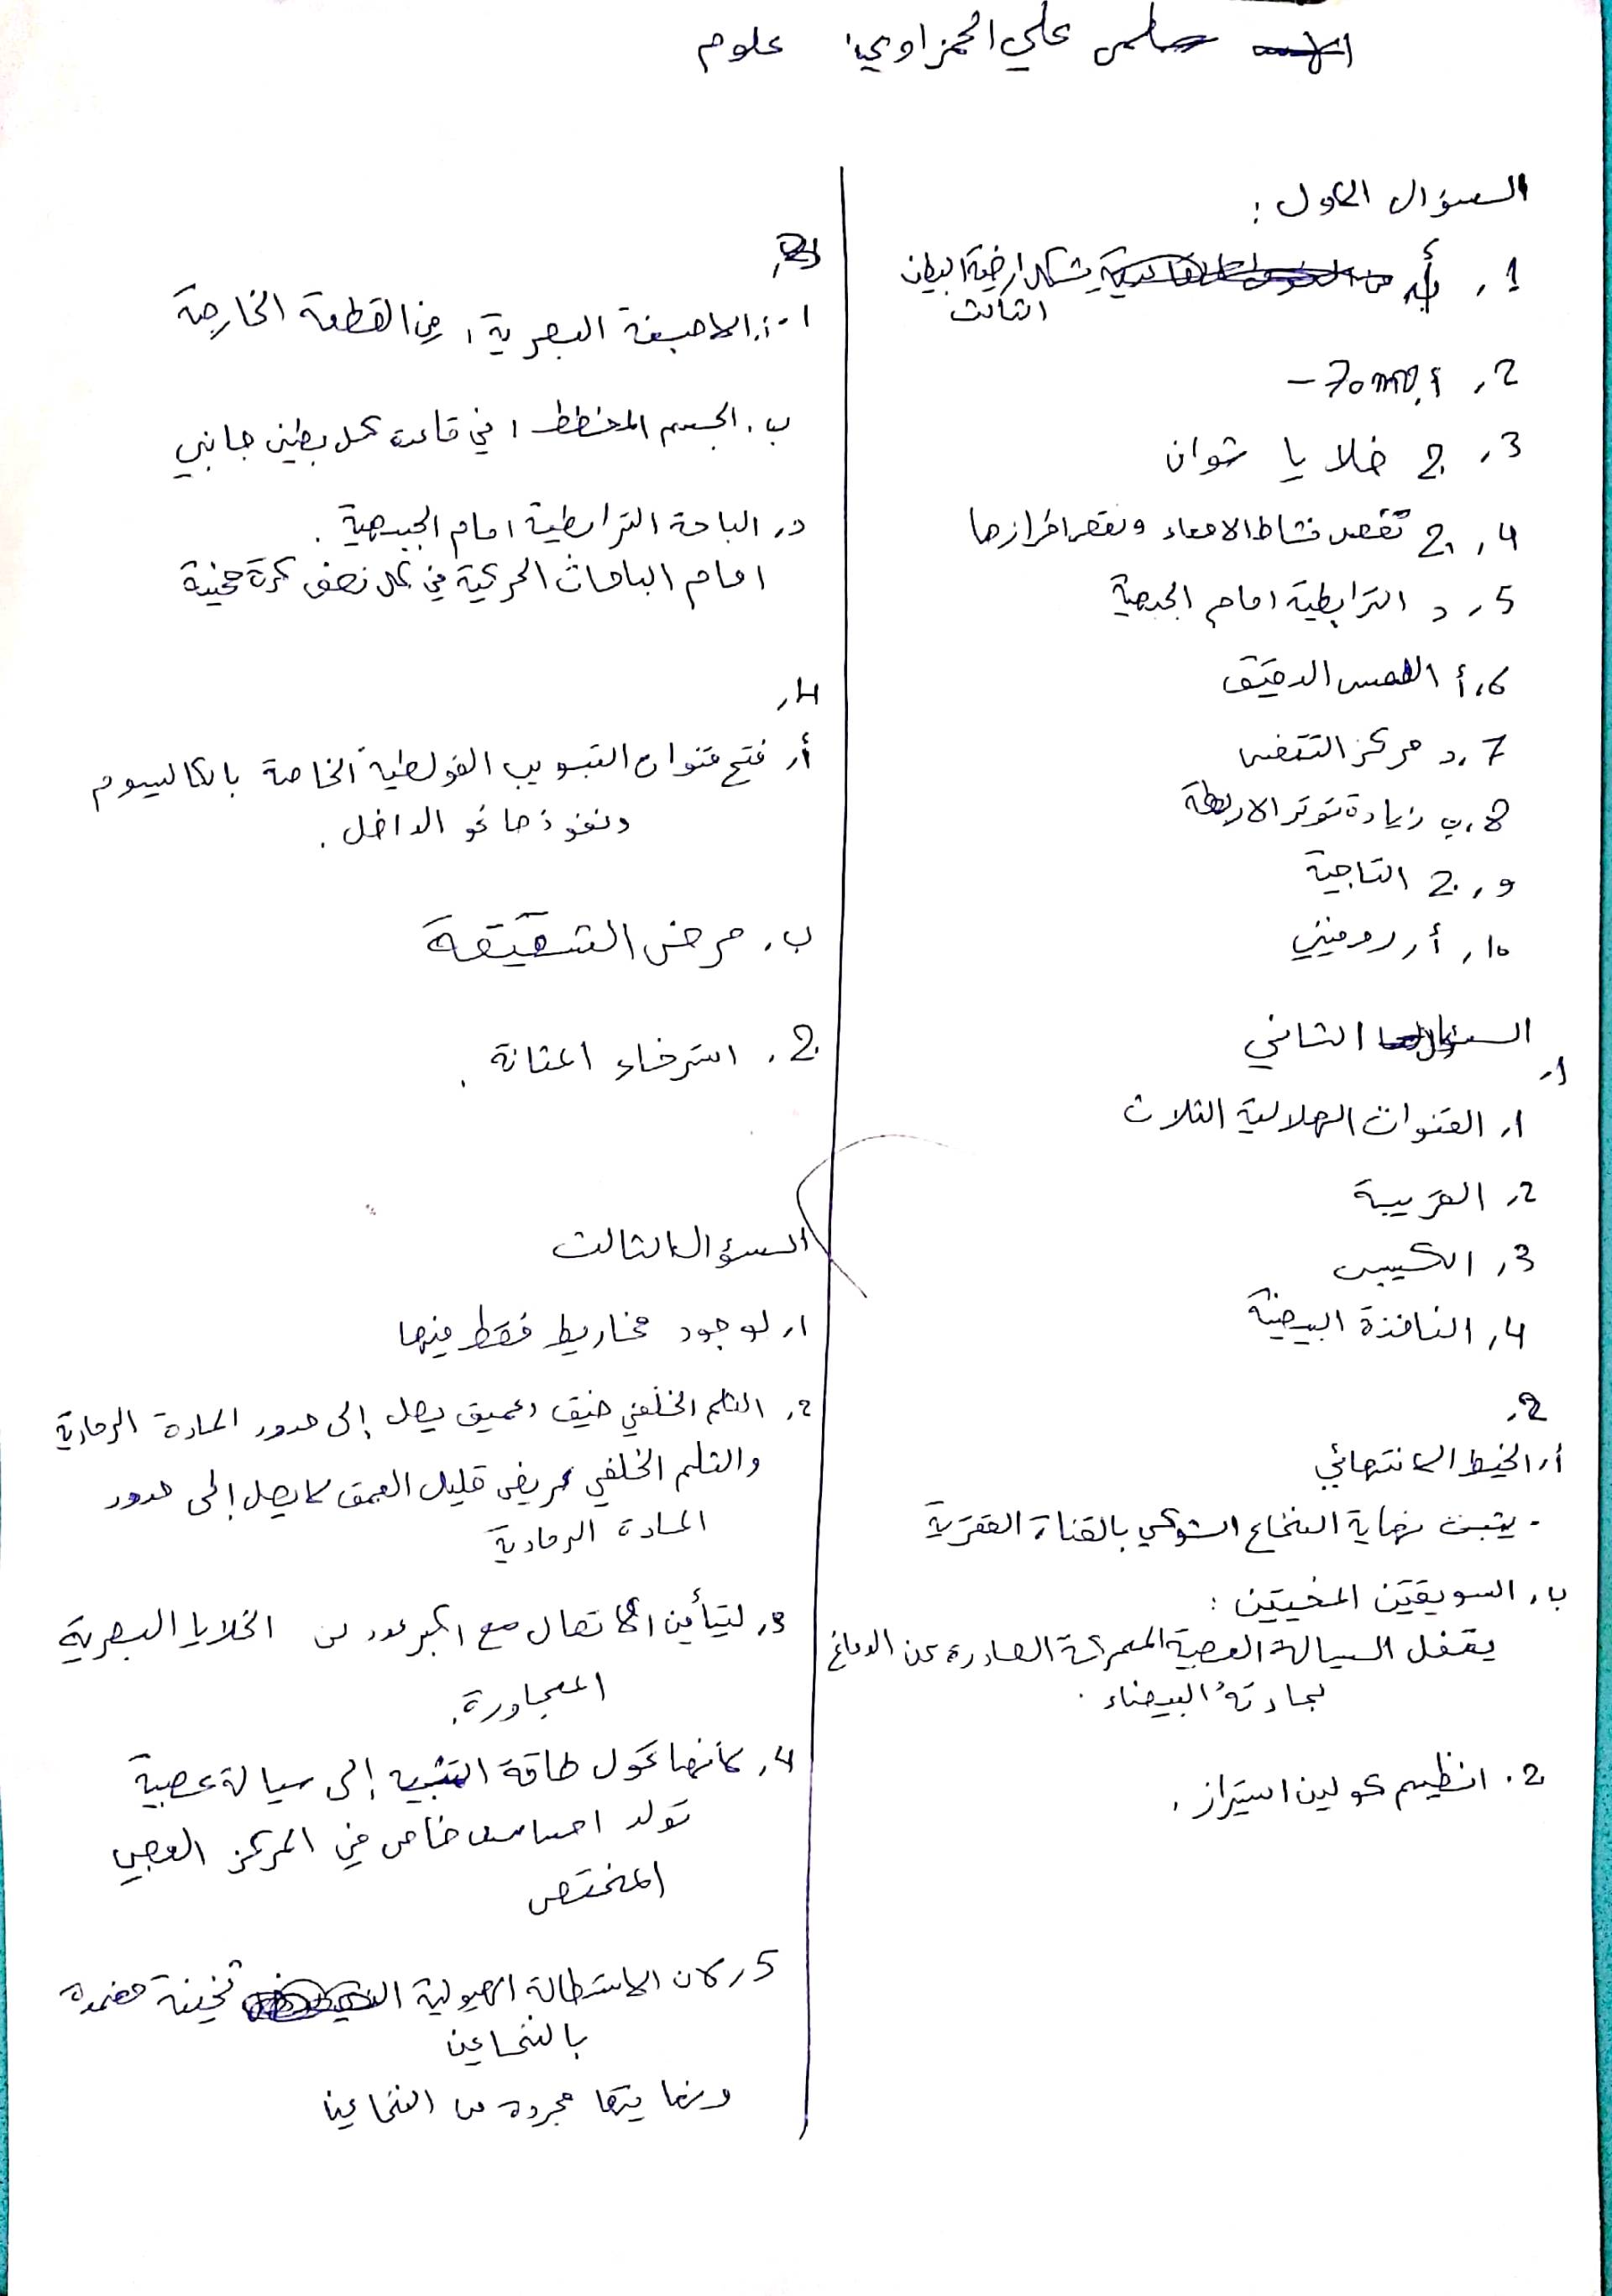 سلمى علي الحمزاوي علوم
السؤال الاول :
1. أ. يشكل ارضية البطين
الثالث
2. أ. -70mv
3. ج خلايا شوان
4. ج. تقص نشاط الامعاء ونقص افرازها
5. د الترابطية امام الجبهية
6. أ اللمس الدقيق
7. د مركز التنفس
8. ب زيادة توتر الاربطة
9. ج التاجية
10. أ. رودنيني
السؤال الثاني
1.
1. القنوات الهلالية الثلاث
2. القريبة
3. الكييس
4. النافذة البيضية
2.
أ. الخيط الانتهائي
- يثبت نهاية النخاع الشوكي بالقناة الفقرية
ب. السويقتين المخيتين :
يقفل السيالة العصبية المحركة الصادرة عن الدماغ
بمادته البيضاء .
2. انظيم كولين استيراز .
3.
1- أ. الاصبغة البصرية : في القطعة الخارجية
ب. الجسم المخطط : في قاعدة كل بطين جانبي
د. الباحة الترابطية امام الجبهية .
امام الباحات الحركية في كل نصف كرة مخية
4.
أ. فتح قنوات التبويب الفولطية الخاصة بالكالسيوم
ونفوذها نحو الداخل .
ب. مرض الشقيقة
2. استرخاء المثانة .
السؤال الثالث
1. لوجود مخاريط فقط فيها
2. الثلم الخلفي ضيق وعميق يصل إلى حدود المادة الرمادية
والثلم الخلفي عريض قليل العمق لا يصل إلى حدود
المادة الرمادية
3. لتأمين الاتصال مع اكبر عدد من الخلايا البصرية
المجاورة.
4. لأنها تحول طاقة التنبيه إلى سيالة عصبية
تولد احساس خاص في المركز العصبي
المختص
5. لان الاستطالة الهيولية ثخينة مغمدة
بالنخاعين
ونهايتها مجردة من النخاعين